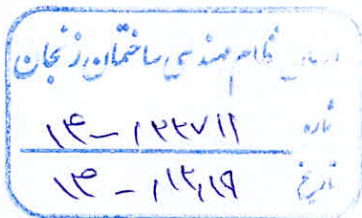 سازمان نظام مهندسی ساختمان زنجان
شماره ۱۴-۱۲۲۷۱۱
تاریخ ۱۳-۱۲,۱۹